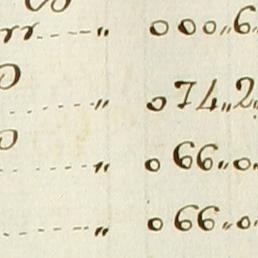 rr ----- " 000,,6
----- " 074,,2,
----- " 066,,0
----- " 066,,0